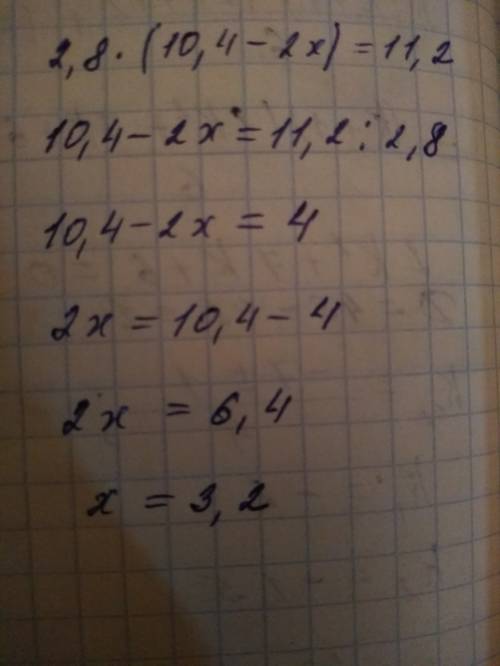 2,8·(10,4-2x)=11,2
10,4-2x=11,2:2,8
10,4-2x=4
2x=10,4-4
2x=6,4
x=3,2